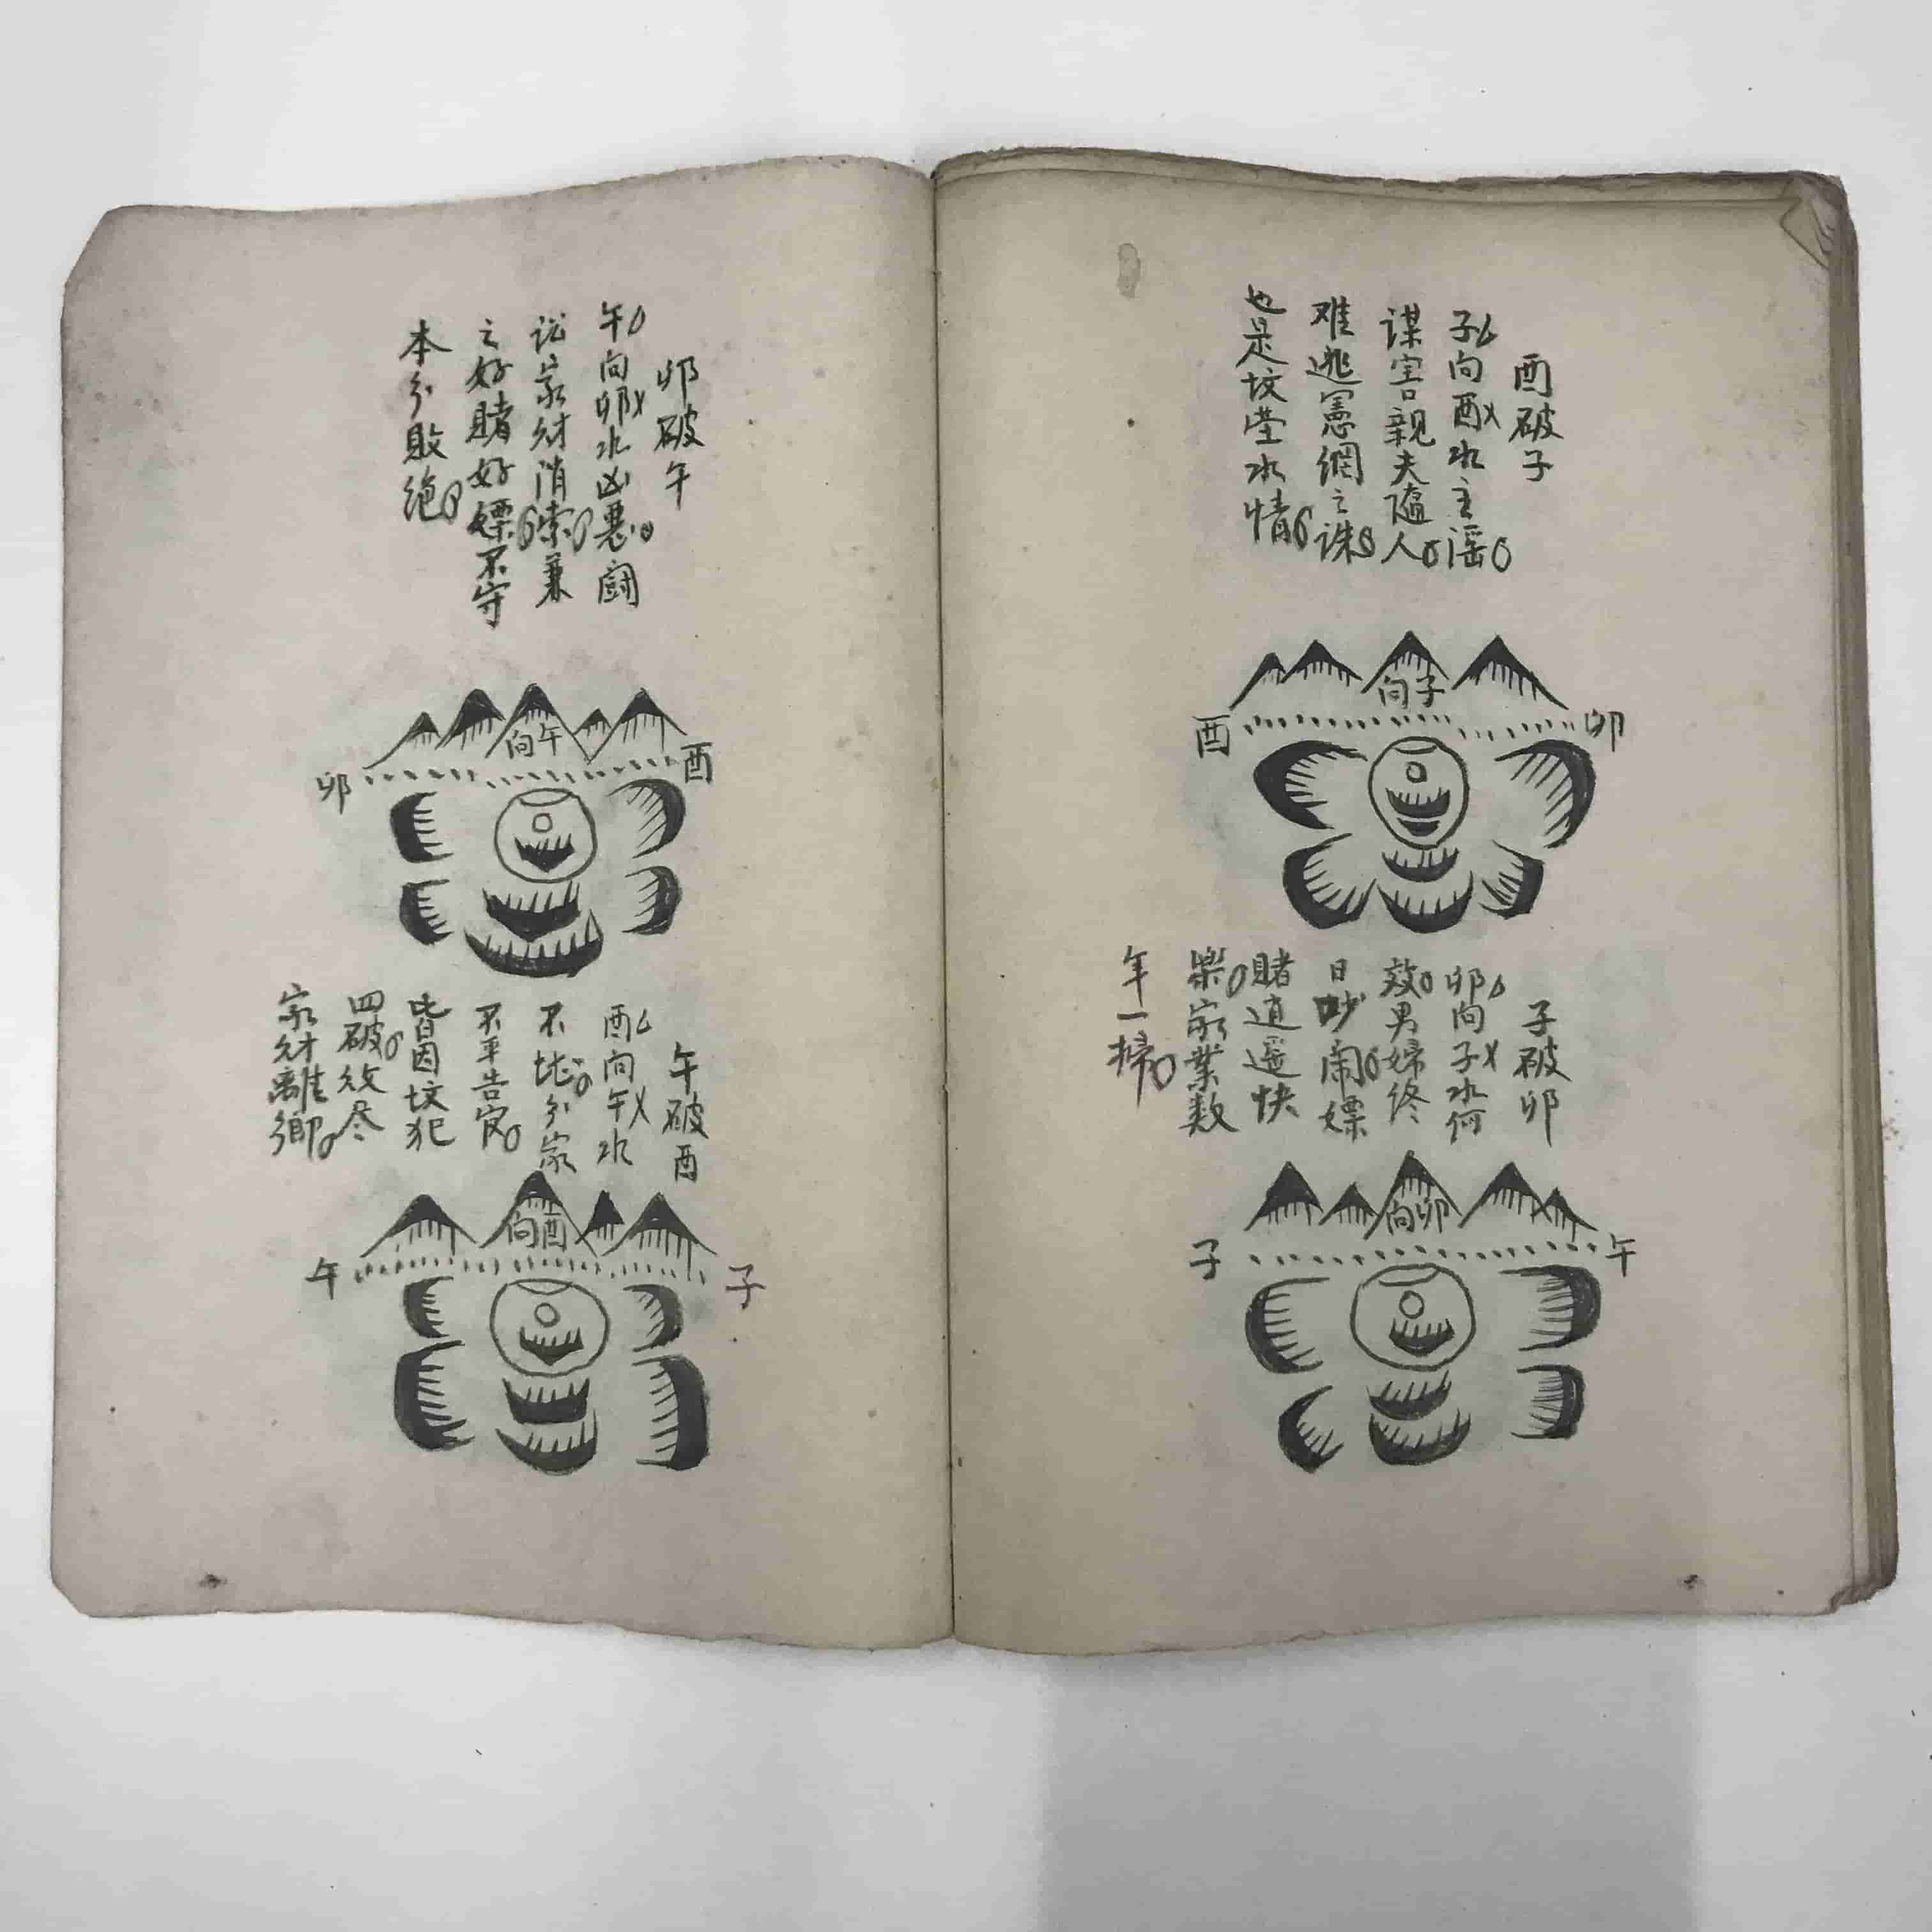 酉破子
子向酉水主滛
謀害親夫隨人
难逃憲網之誅
也是坟塋水情
向子
酉
卯
子破卯
卯向子水何
效男婦終
日吵鬧嫖
賭逍遥快
樂家業数
年一掃
向卯
子
午
卯破午
午向卯水凶惡鬪
訟家财消索兼
之好賭好嫖不守
本分敗絶
向午
卯
酉
午破酉
酉向午水
不比分家
不平告官
皆因坟犯
四破敗尽
家财離鄉
向酉
午
子